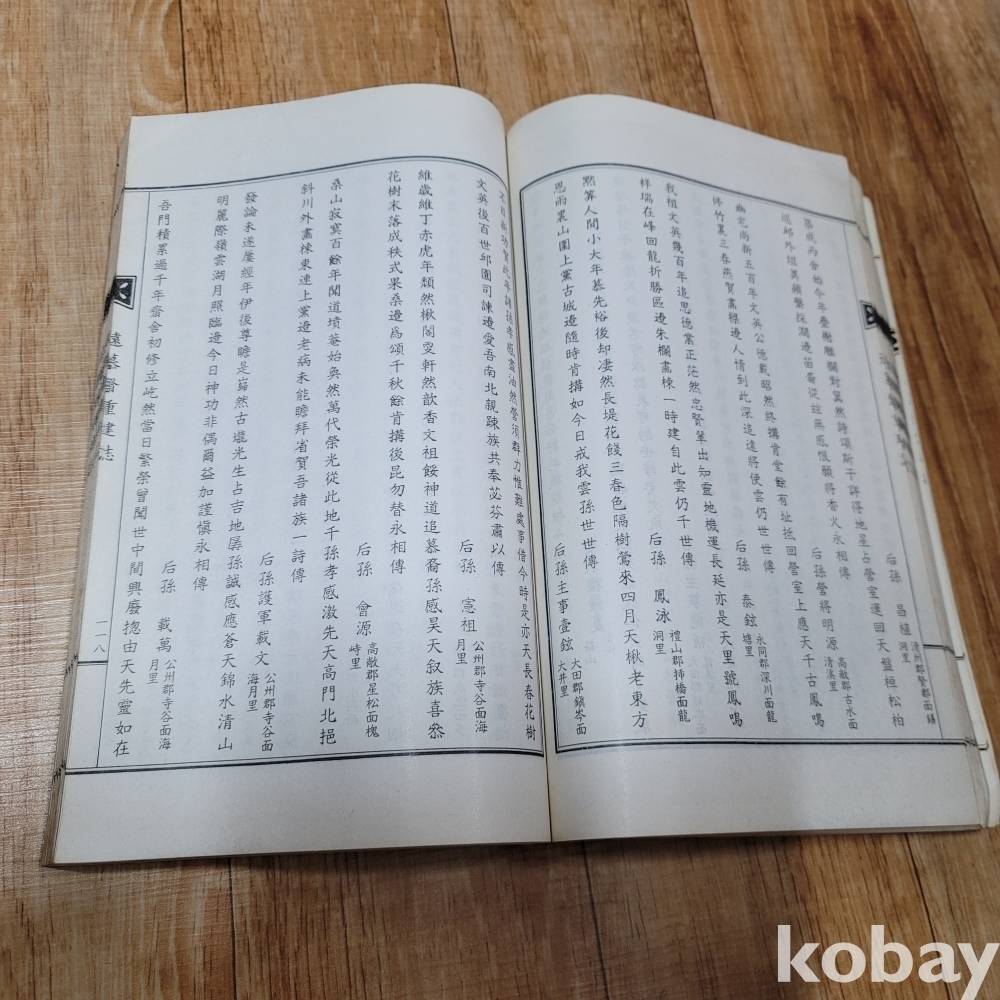 后孫 昌植 清州郡賢都面
洞里
築成丙舍始今年
室運回天盤桓松柏
后孫營將明源 高敞郡古水面
清溪里
願將香火永相傳
營室上應天千古鳳鳴
后孫 泰鉉 永同郡深川面龍
塘里
幽宅尚新五百年文英公德載昭然終搆肯堂餘有址抵回
脩竹裏三春燕賀畵樑邊人情到此深追遠將使雲仍世世傳
后孫 鳳泳 禮山郡揷橋面龍
洞里
我祖文英幾百年追思德業正茫然忠賢軰出知靈地機運長延亦是天里號鳳鳴
祥瑞在峰回龍折勝區邊朱欄畵棟一時建自此雲仍千世傳
后孫主事壹鉉 大田郡鎭岑面
大井里
默筭人間小大年墓先裕後却凄然長堤花餞三春色隔樹鶯來四月天楸老東方
思雨裏山圍上黨古城邊隨時肯搆如今日戒我雲孫世世傳
諸孫孝感盡油然營須群力惟難處事借今時是亦天長春花樹
文英後百世邱園司諫邊愛吾南北親踈族共奉苾芬肅以傳
后孫 憲祖 公州郡寺谷面海
月里
維歲維丁赤虎年頹然楸閣㪅軒然歆香文祖餒神道追慕裔孫感昊天叙族喜叅
花樹末落成秩式果桑邊爲頌千秋餘肯搆後昆勿替永相傳
后孫 會源 高敞郡星松面槐
峙里
桑山寂寞百餘年聞道墳菴始奐然萬代榮光從此地千孫孝感激先天高門北挹
斜川外畵棟東連上黨邊老病未能瞻拜省賀吾諸族一詩傳
后孫護軍載文 公州郡寺谷面
海月里
發論未遂屢經年伊後尊瞻是巋然古壠光生占吉地孱孫誠感應蒼天錦水清山
明麗際嶺雲湖月照臨邊今日神功非偶爾益加謹愼永相傳
后孫 載萬 公州郡寺谷面海
月里
吾門積累過千年齋舍初修立屹然當日繁榮曾聞世中間興廢揔由天先靈如在
遠慕齋重建誌
一一八
kobay